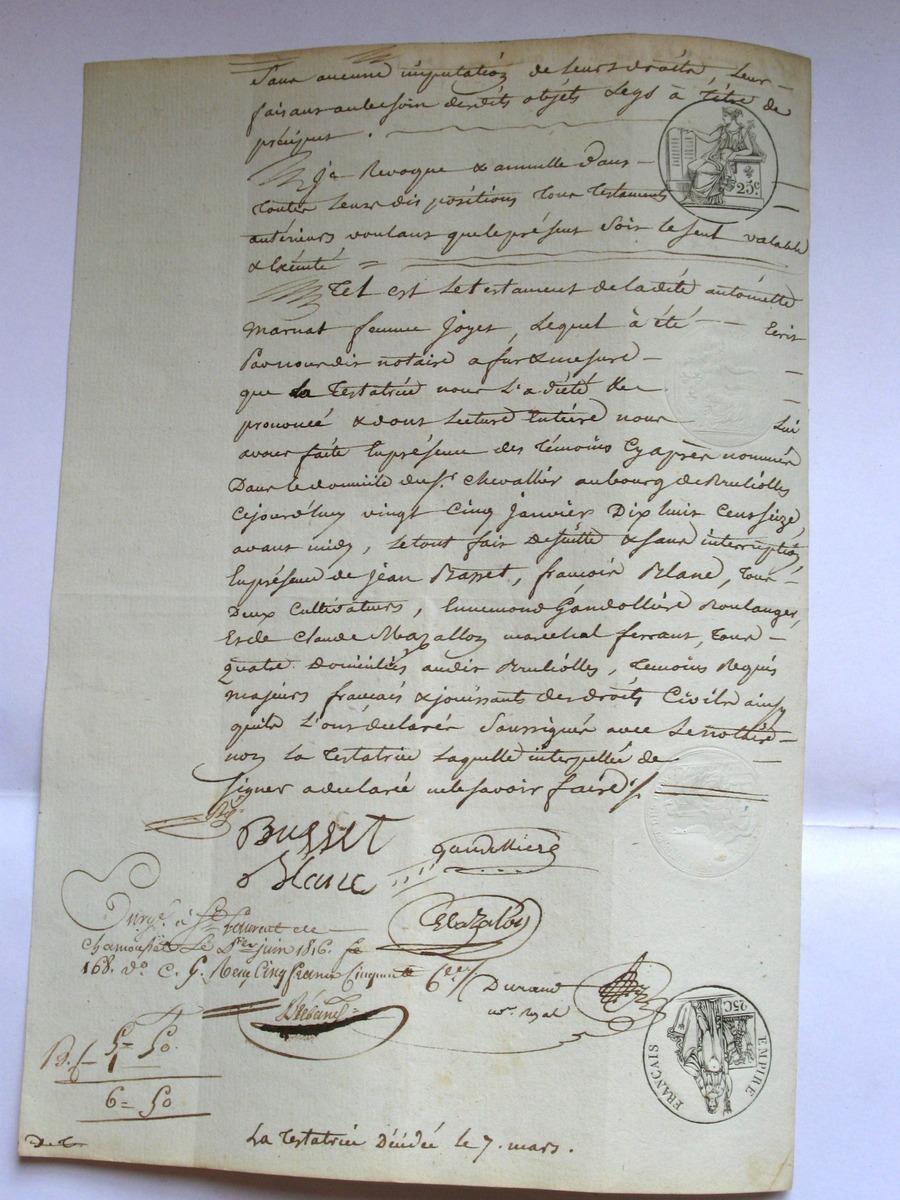 Sans aucune imputation de leurs droits, leur
faisant au besoin desdits objets Legs à titre de
préciput.
Je Revoque & annulle dans
toutes leurs dispositions tous Testaments
antérieurs voulant que le présent soit le seul valable
& Exécuté =
Tel est le testament de ladite antoinette
Marnat femme Joyet, lequel à été Ecrit
Par nous dit notaire a fur & mesure
que la Testatrice nous l'a dicté &
prononcé & dont Lecture Entière nous lui
avons faite En présence des témoins Cyaprès nommés
Dans le domicile du sr. Chevallier au bourg de Brullioles
Cejourd'huy vingt Cinq Janvier Dix huit Cent seize,
avant midy, le tout fait de suitte & sans interruption,
En présence de Jean Basset, françois Blanc, tous
Deux Cultivateurs, Ennemond Gandollière Boulanger,
Et de Claude Mazallon marechal ferrant, tous
quatre Domiciliés audit Brullioles, temoins Requis
majeurs français & jouissants des droits Civils ainsy
qu'ils L'ont déclarés Soussignés avec Le notaire
non la Testatrice Laquelle interpellée de
signer a déclaré ne le savoir faire
Busset
gandilliere
Blanc
Mazalon
Enregé. à St. Laurent de
chamousset Le 1er juin 1816. fo
168. vo. C. 5. Reçu Cinq francs Cinquante
Durand
nre. Royal
5= 50
6= 50
La Testatrice Décédée le 7. mars.
25c.
25C
EMPIRE
FRANÇAIS